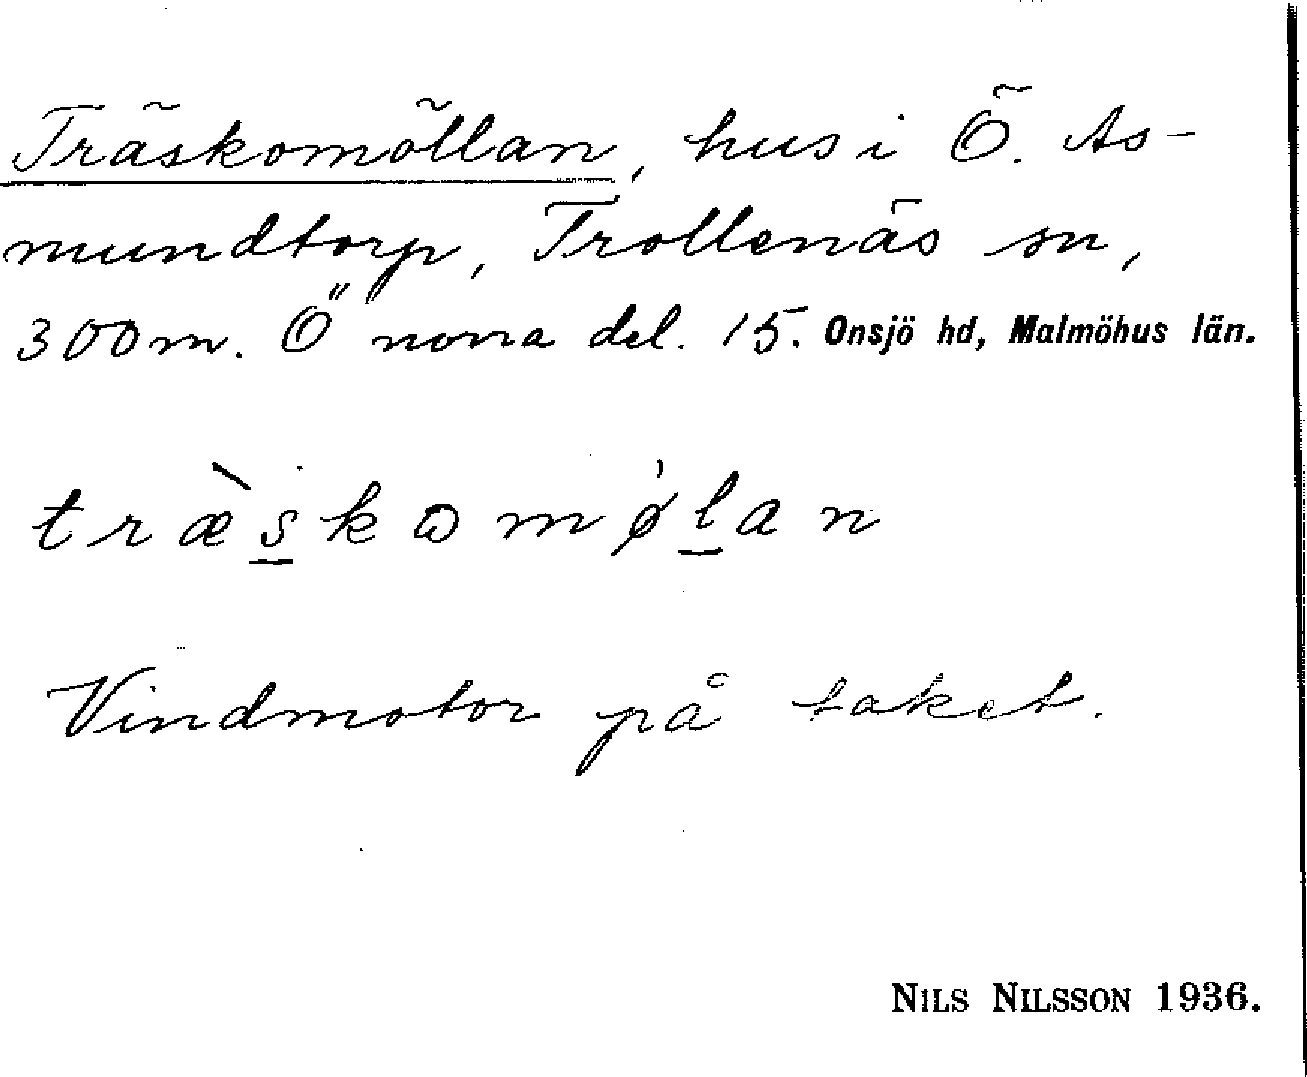 Träskomöllan, hus i Ö. As-
mundtorp, Trollenäs sn,
300 m. Ö norra del. 15. Onsjö hd, Malmöhus län.
træ̀s̲komø̍l̲an
Vindmotor på taket.
NILS NILSSON 1936.